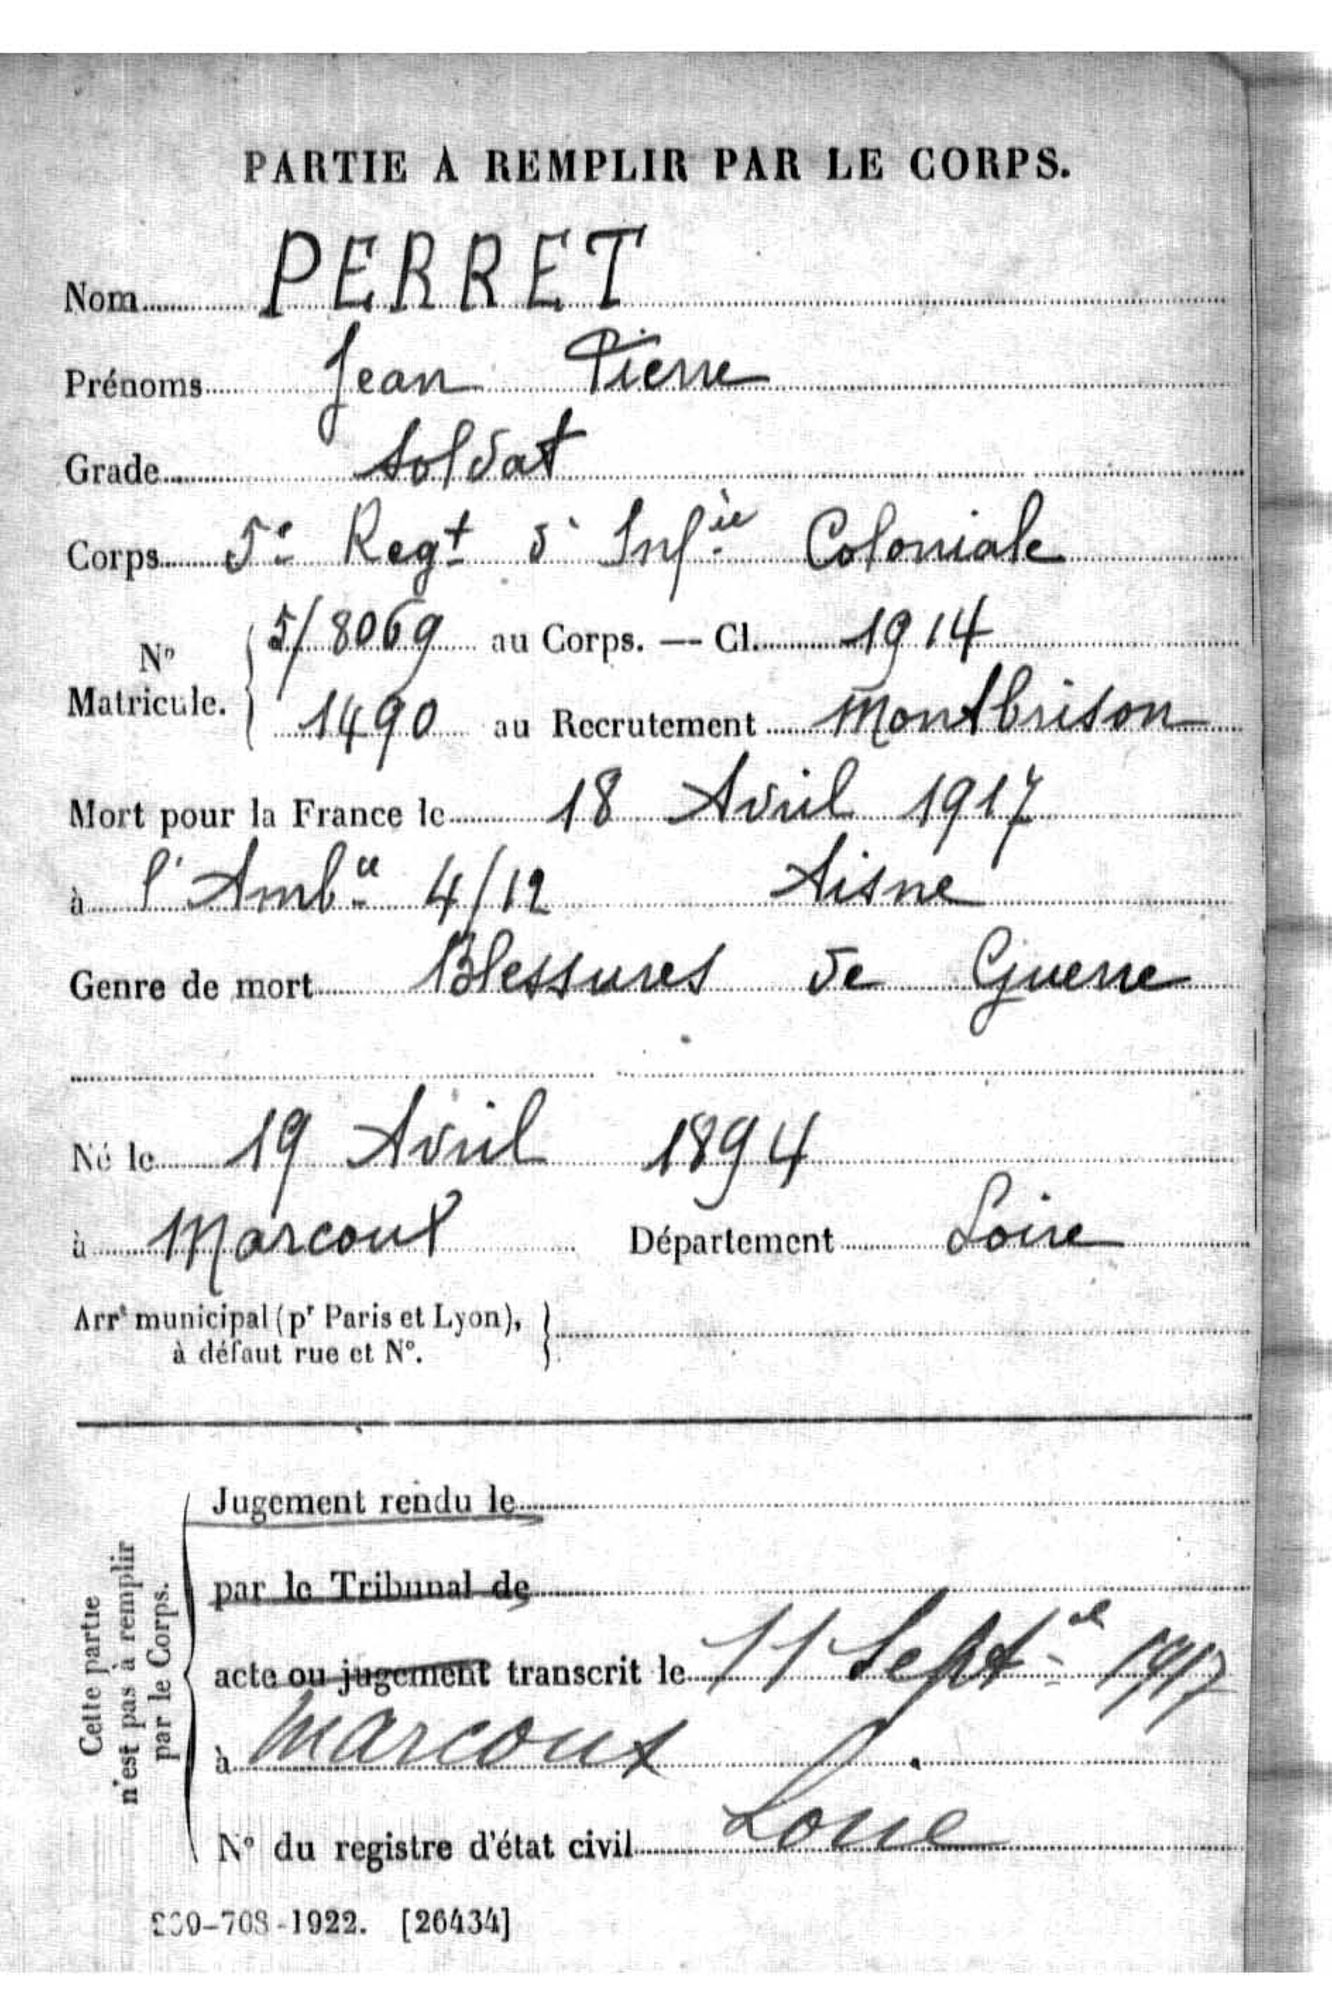 PARTIE À REMPLIR PAR LE CORPS.
Nom PERRET
Prénoms Jean Pierre
Grade Soldat
Corps 5e Regt d'Infie Coloniale
No Matricule. 5/8069 au Corps. — Cl. 1914
1490 au Recrutement Montbrison
Mort pour la France le 18 Avril 1917
à l'Ambce 4/12 Aisne
Genre de mort Blessures de Guerre
Né le 19 Avril 1894
à Marcoux Département Loire
Arrt municipal (pr Paris et Lyon),
à défaut rue et N°.
Cette partie
n'est pas à remplir
par le Corps.
Jugement rendu le
par le Tribunal de
acte ou jugement transcrit le 11 Septre 1917
à Marcoux
N° du registre d'état civil Loire
-708-1922. [26434]